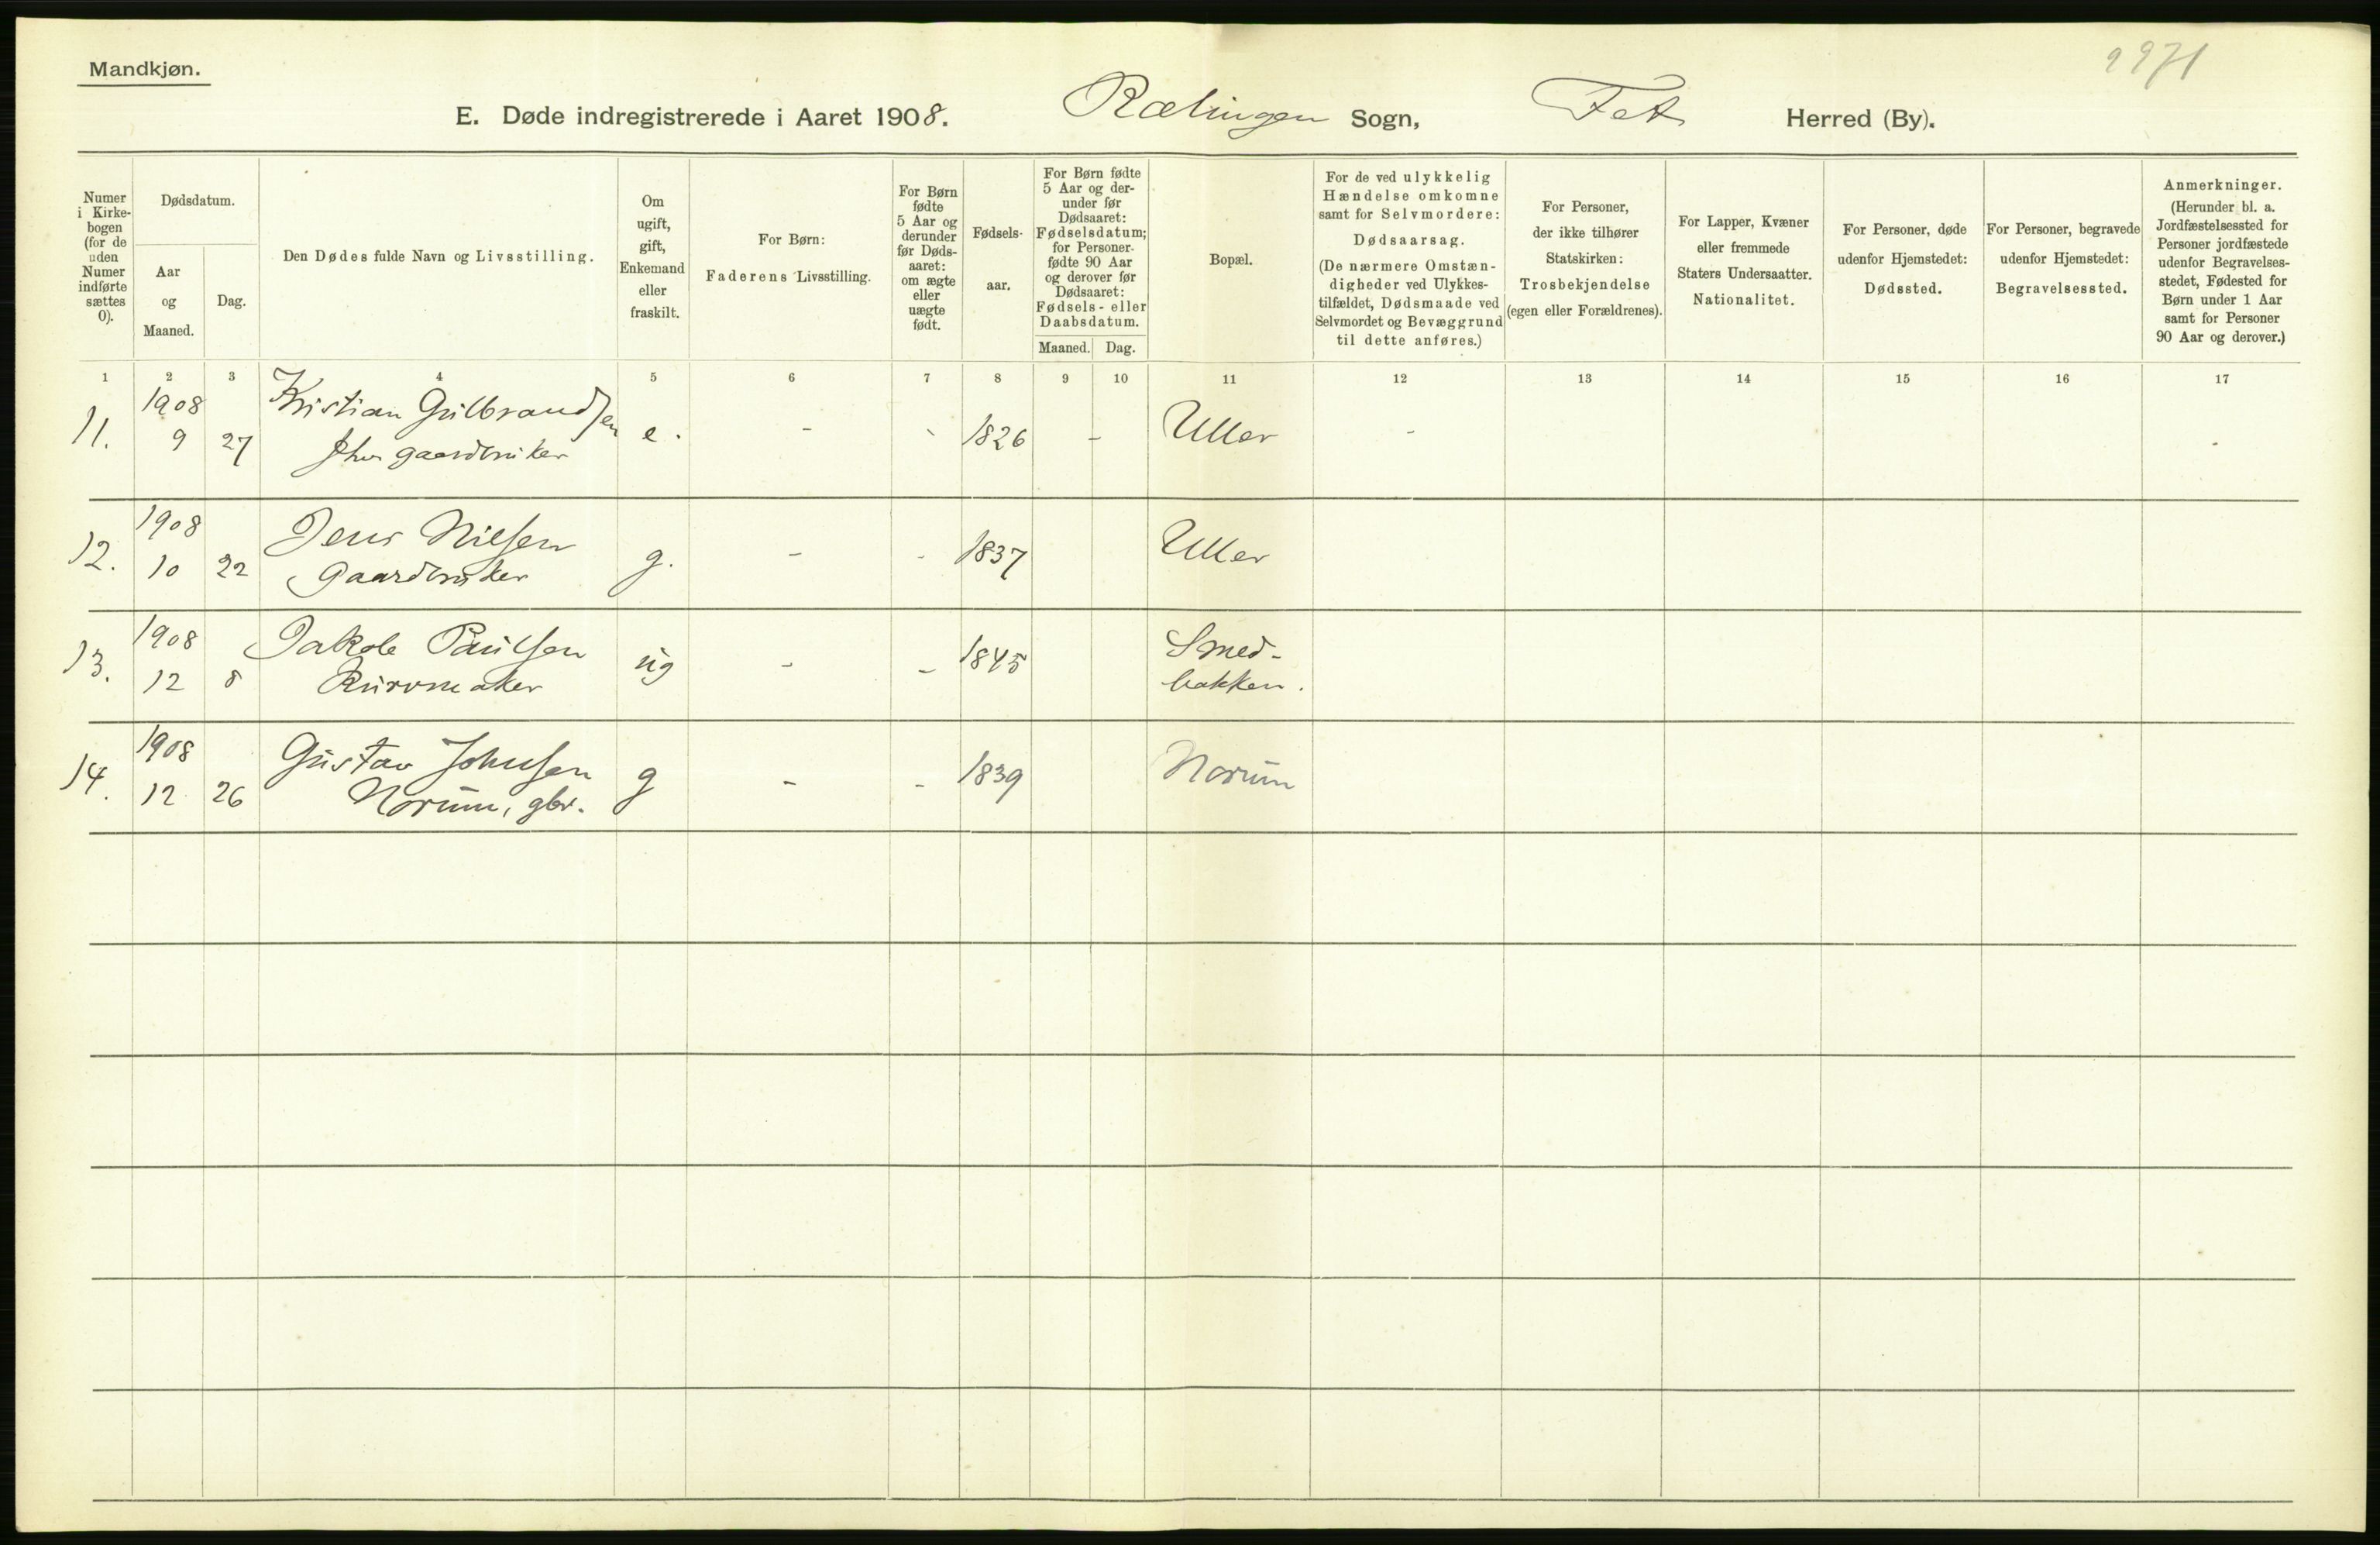 Mandkjøn.
2971
E. Døde indregistrerede i Aaret 1908. Rælingen Sogn, Fet Herred (By).
Numer i Kirke-bogen (for de uden Numer indførte sættes 0).
Dødsdatum.
Aar og Maaned.
Dag.
Den Dødes fulde Navn og Livsstilling.
Om ugift, gift, Enkemand eller fraskilt.
For Børn: Faderens Livsstilling.
For Børn fødte 5 Aar og derunder før Døds-aaret: om ægte eller uægte født.
Fødsels-aar.
For Børn fødte 5 Aar og der-under før Dødsaaret: Fødselsdatum; for Personer fødte 90 Aar og derover før Dødsaaret: Fødsels- eller Daabsdatum.
Maaned. Dag.
Bopæl.
For de ved ulykkelig Hændelse omkomne samt for Selvmordere: Dødsaarsag. (De nærmere Omstæn-digheder ved Ulykkes-tilfældet, Dødsmaade ved Selvmordet og Bevæggrund til dette anføres.)
For Personer, der ikke tilhører Statskirken: Trosbekjendelse (egen eller Forældrenes).
For Lapper, Kvæner eller fremmede Staters Undersaatter. Nationalitet.
For Personer, døde udenfor Hjemstedet: Dødssted.
For Personer, begravede udenfor Hjemstedet: Begravelsessted.
Anmerkninger. (Herunder bl. a. Jordfæstelsessted for Personer jordfæstede udenfor Begravelses-stedet, Fødested for Børn under 1 Aar samt for Personer 90 Aar og derover.)
1 2 3 4 5 6 7 8 9 10 11 12 13 14 15 16 17
1908 Kristian Gulbrandsen
11. 9 27 gaardbruker e. - - 1826 - Uller -
1908 Jens Nielsen
12. 10 22 Gaardbruker g. - - 1837 Uller
1908 Jakob Paulsen Smed-
13. 12 8 Kurvmaker ug - - 1845 bakken.
1908 Gustav Johnsen
14. 12 26 Norum, gbr. g - - 1839 Norum